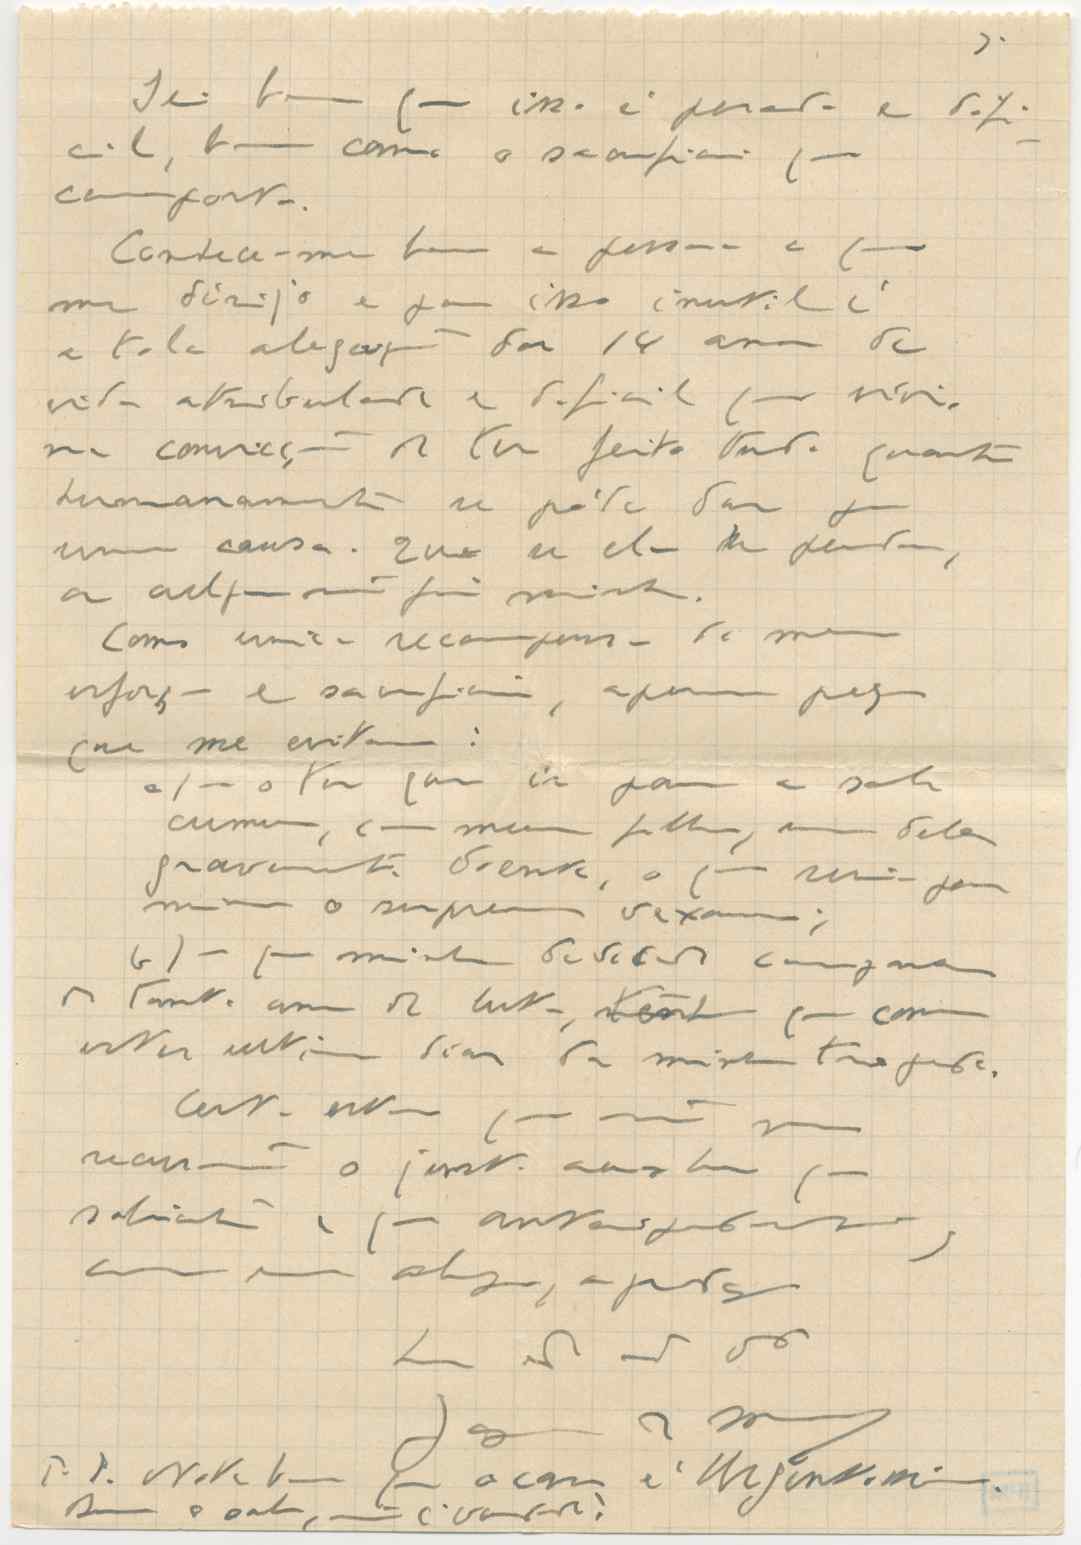 3.
Sei bem que isso é pesado e difi-
cil, bem como o sacrificio que
comporta.
Conhece-me bem a pessoa a que
me dirijo e por isso inutil é
a tola alegação dos 14 anos de
vida atribulada e dificil que vivi.
na convicção de ter feito tudo quanto
humanamente se póde dar por
uma causa. Que se ela se perder,
a culpa não foi minha.
Como unica recompensa de meu
esforço e sacrificio, apenas peço
que me evitem:
a) – o ter que ir para a sala
comum, com meus filhos, um deles
gravemente doente, o que seria para
mim o supremo vexame;
b) – que minha dedicada companheira
de tantos anos de luta, que como
estes ultimos dias da minha tragedia.
Certo estou que não me
recusarão o justo que
solicito e que antecipadamente,
como um abraço, agradeço
de
P. S. Note bem que o caso é Urgentissimo.
Bem o sabe, não é verdade?